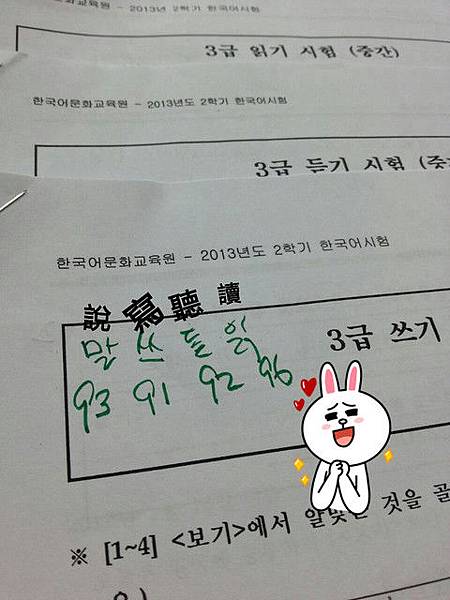 교육원 - 2013년 2학기 한국어시험
3급 읽기 시험 (중간)
한국어문화교육원 - 2013년도 2학기 한국어시험
3급 듣기 시험 (중
한국어문화교육원 - 2013년도 2학기 한국어시험
說 寫 聽 讀
말 쓰 듣 읽
93 91 92 96
3급 쓰기
※ [1~4] <보기>에서 알맞은 것을 골